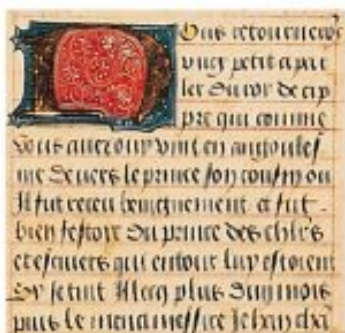 Nous retournerons
ung petit a par
ler du roy de cip
pre qui comme
vous auez ouy vint en angoules
me deuers le prince son cousin ou
Il fut receu benignement et fut
bien festoye du prince des chlrs
et escuiers qui entour luy estoient
Sy se tint Illecq plus dun mois
puis le mena messire Jehan chã